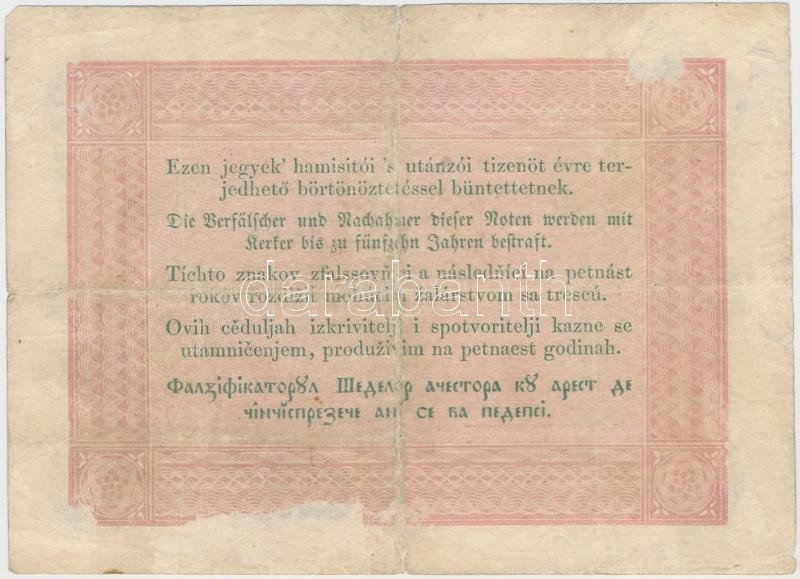 Ezen jegyek' hamisitói 's utánzói tizenöt évre ter-
jedhető börtönöztetéssel büntettetnek.
Die Verfälscher und Nachahmer dieser Noten werden mit
Kerker bis zu fünfzehn Jahren bestraft.
Tíchto znakov a následňíci na petnást
rokov žalárstvom sa trescú.
Ovih cĕduljah izkrivitelji i spotvoritelji kazne se
utamničenjem, na petnaest godinah.
Фалꙁіфікаторꙋл Шеделор ачестора кꙋ арест де
чінчіспреꙁече ані се ва педепсі.
darabanth